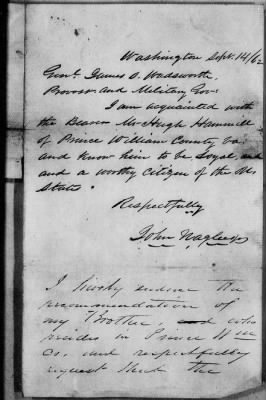 Washington Sept. 14/62
Genl. James S. Wadsworth,
Provost and Military Gov:
I am acquainted with
the Bearer Mr Hugh Hammill
of Prince William County Va.
and know him to be Loyal and
and a worthy citizen of the U.
States"
Respectfully
John
I hereby endorse the
recommendation of
my Brother, who
resides in Prince Wm
Co. and respectfully
request that the